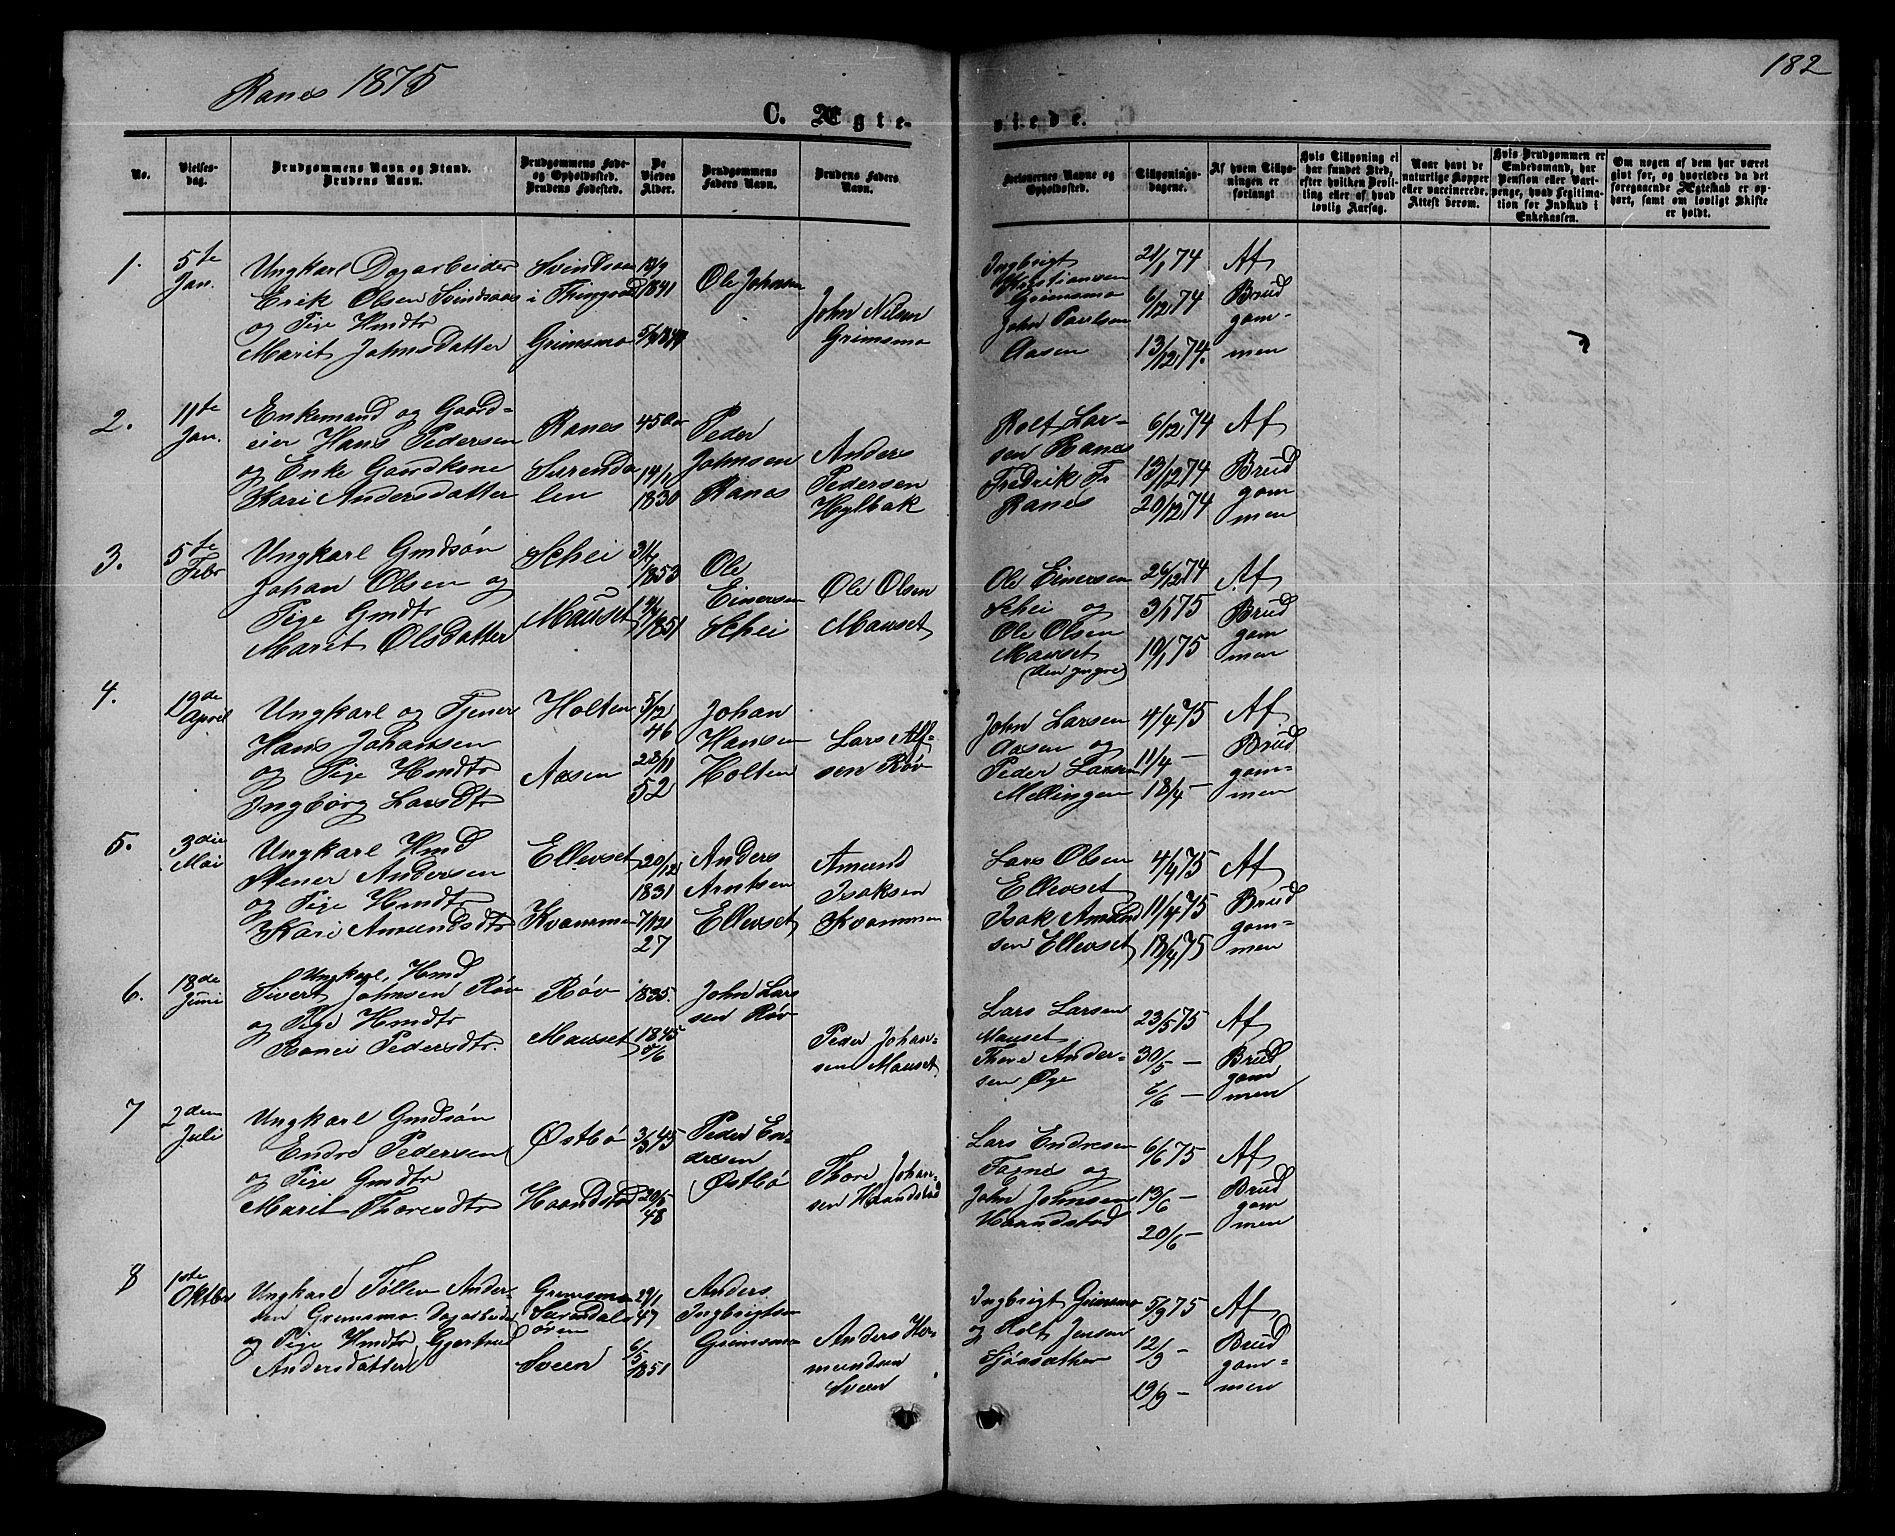 Ranes 1875
182
C. Ægte-
viede.
No.
Vielses-
dag.
Brudgommens Navn og Stand.
Brudens Navn.
Brudgommens Føde-
og Opholdssted.
Brudens Fødested.
De
Viedes
Alder.
Brudgommens
Faders Navn.
Brudens Faders
Navn.
Forlovernes Navne og
Opholdssted.
Tillysnings-
dagene.
Af hvem Tillys-
ningen er
forlangt.
Hvis Tillysning ei
har fundet Sted,
efter hvilken Bevil-
ling eller af hvad
lovlig Aarsag.
Naar havt de
naturlige Kopper
eller vaccinerede.
Attest derom.
Hvis Brudgommen er
Embedsmand, har
Pension eller Vart-
penge, hvad Legitima-
tion for Indskud i
Enkekassen.
Om nogen af dem har været
gift før, og hvorledes da det
foregaaende Ægteskab er op-
hørt, samt om lovligt Skifte
er holdt.
1.
5te
Jan.
Ungkarl Dagarbeider
Erik Olsen Svindsaas
og Pige Hmdtr
Marit Johnsdatter
Svindsaas
i Thingvold
Grimsmo
1841
Ole Johnsen
John Nilsen
Grimsmo
Ingbrigt
Kristiansen
Grimsmo
John Paulsen
Aasen
6/12 74
13/12 74.
Af
Brud
gom-
men
2.
11te
Jan.
Enkemand og Gaard-
eier Hans Pedersen
og Enke Gaardkone
Kari Andersdatter
Ranes
Surenda
len
45 Aar
14/1
1830
Peder
Johnsen
Ranes
Anders
Pedersen
Hylbak
Rolt Lar-
sen Ranes
Fredrik Fr
Ranes
6/12 74
13/12 74
20/12 74
Af
Brud
gom
men
3.
5te
Febr
Ungkarl Gmdsøn
Johan Olsen og
Pige Gmdtr
Marit Olsdatter
Schei
Mauset
1853
1851
Ole
Einersen
Schei
Ole Olsen
Mauset
Ole Einersen
Schei og
Ole Olsen
Mauset
(den yngre)
26/12 74
3/1 75
10/1 75
Af
Brud
gom
men
4.
19de
April
Ungkarl og Tjener
Hans Johansen
og Pige Hmdtr
Ingbørg Larsdtr
Holten
Aasen
5/12
46
28/11
52
Johan
Hansen
Holten
Lars Alf-
sen Røv
John Larsen
Aasen og
Peder Larsen
Mellingen
4/4 75
11/4 -
18/4 -
Af
Brud
gom-
men
5.
3die
Mai
Ungkarl Hmd
Stener Andersen
og Pige Hmdtr
Kari Amundsdtr
Ellevset
Kvammen
20/12
1831
7/12
27
Anders
Arntsen
Ellevset
Amund
Isaksen
Kvammen
Lars Olsen
Ellevset
Isak Amund
sen Ellevset
4/4 75
11/4 75
18/4 75
Af
Brud
gom-
men
6.
18de
Juni
Ungkarl, Hmd
Sivert Johnsen Røv
og Pige Hmdtr
Ranei Pedersdtr.
Røv
Mauset
1835.
1845
John Lars
sen Røv
Peder Johan-
sen Mauset
Lars Larsen
Mauset
Thore Ander-
sen Øye
23/5 75
30/5 -
6/6 -
Af
Brud
gom
men
7
2den
Juli
Ungkarl Gmdsøn
Endre Pedersen
og Pige Gmdtr
Marit Thoresdtr
Østbø
Haandstad
3/3 45
20/5
48
Peder En-
dresen
Østbø
Thore Johan-
sen Haandstad
Lars Endresen
Fagnes og
John Johnsen
Haandstad
6/6 75
13/6 -
20/6 -
Af
Brud
gom
men
8
1ste
Oktbr
Ungkarl Tøllev Ander-
sen Grimsmo. Dagarbeider
og Pige Hmdtr Gjertrud
Andersdatter
Grimsmo
Surendals
øren
Sveen
29/1
47
6/5
1851
Anders
Ingbrigtsen
Grimsmo
Anders Ha-
mundsen
Sveen
Ingbrigt Grimsmo
og Rolt Jensen
Sjøsæther
5/9 75
12/9 -
19/9 -
Af
Brud
gom-
men